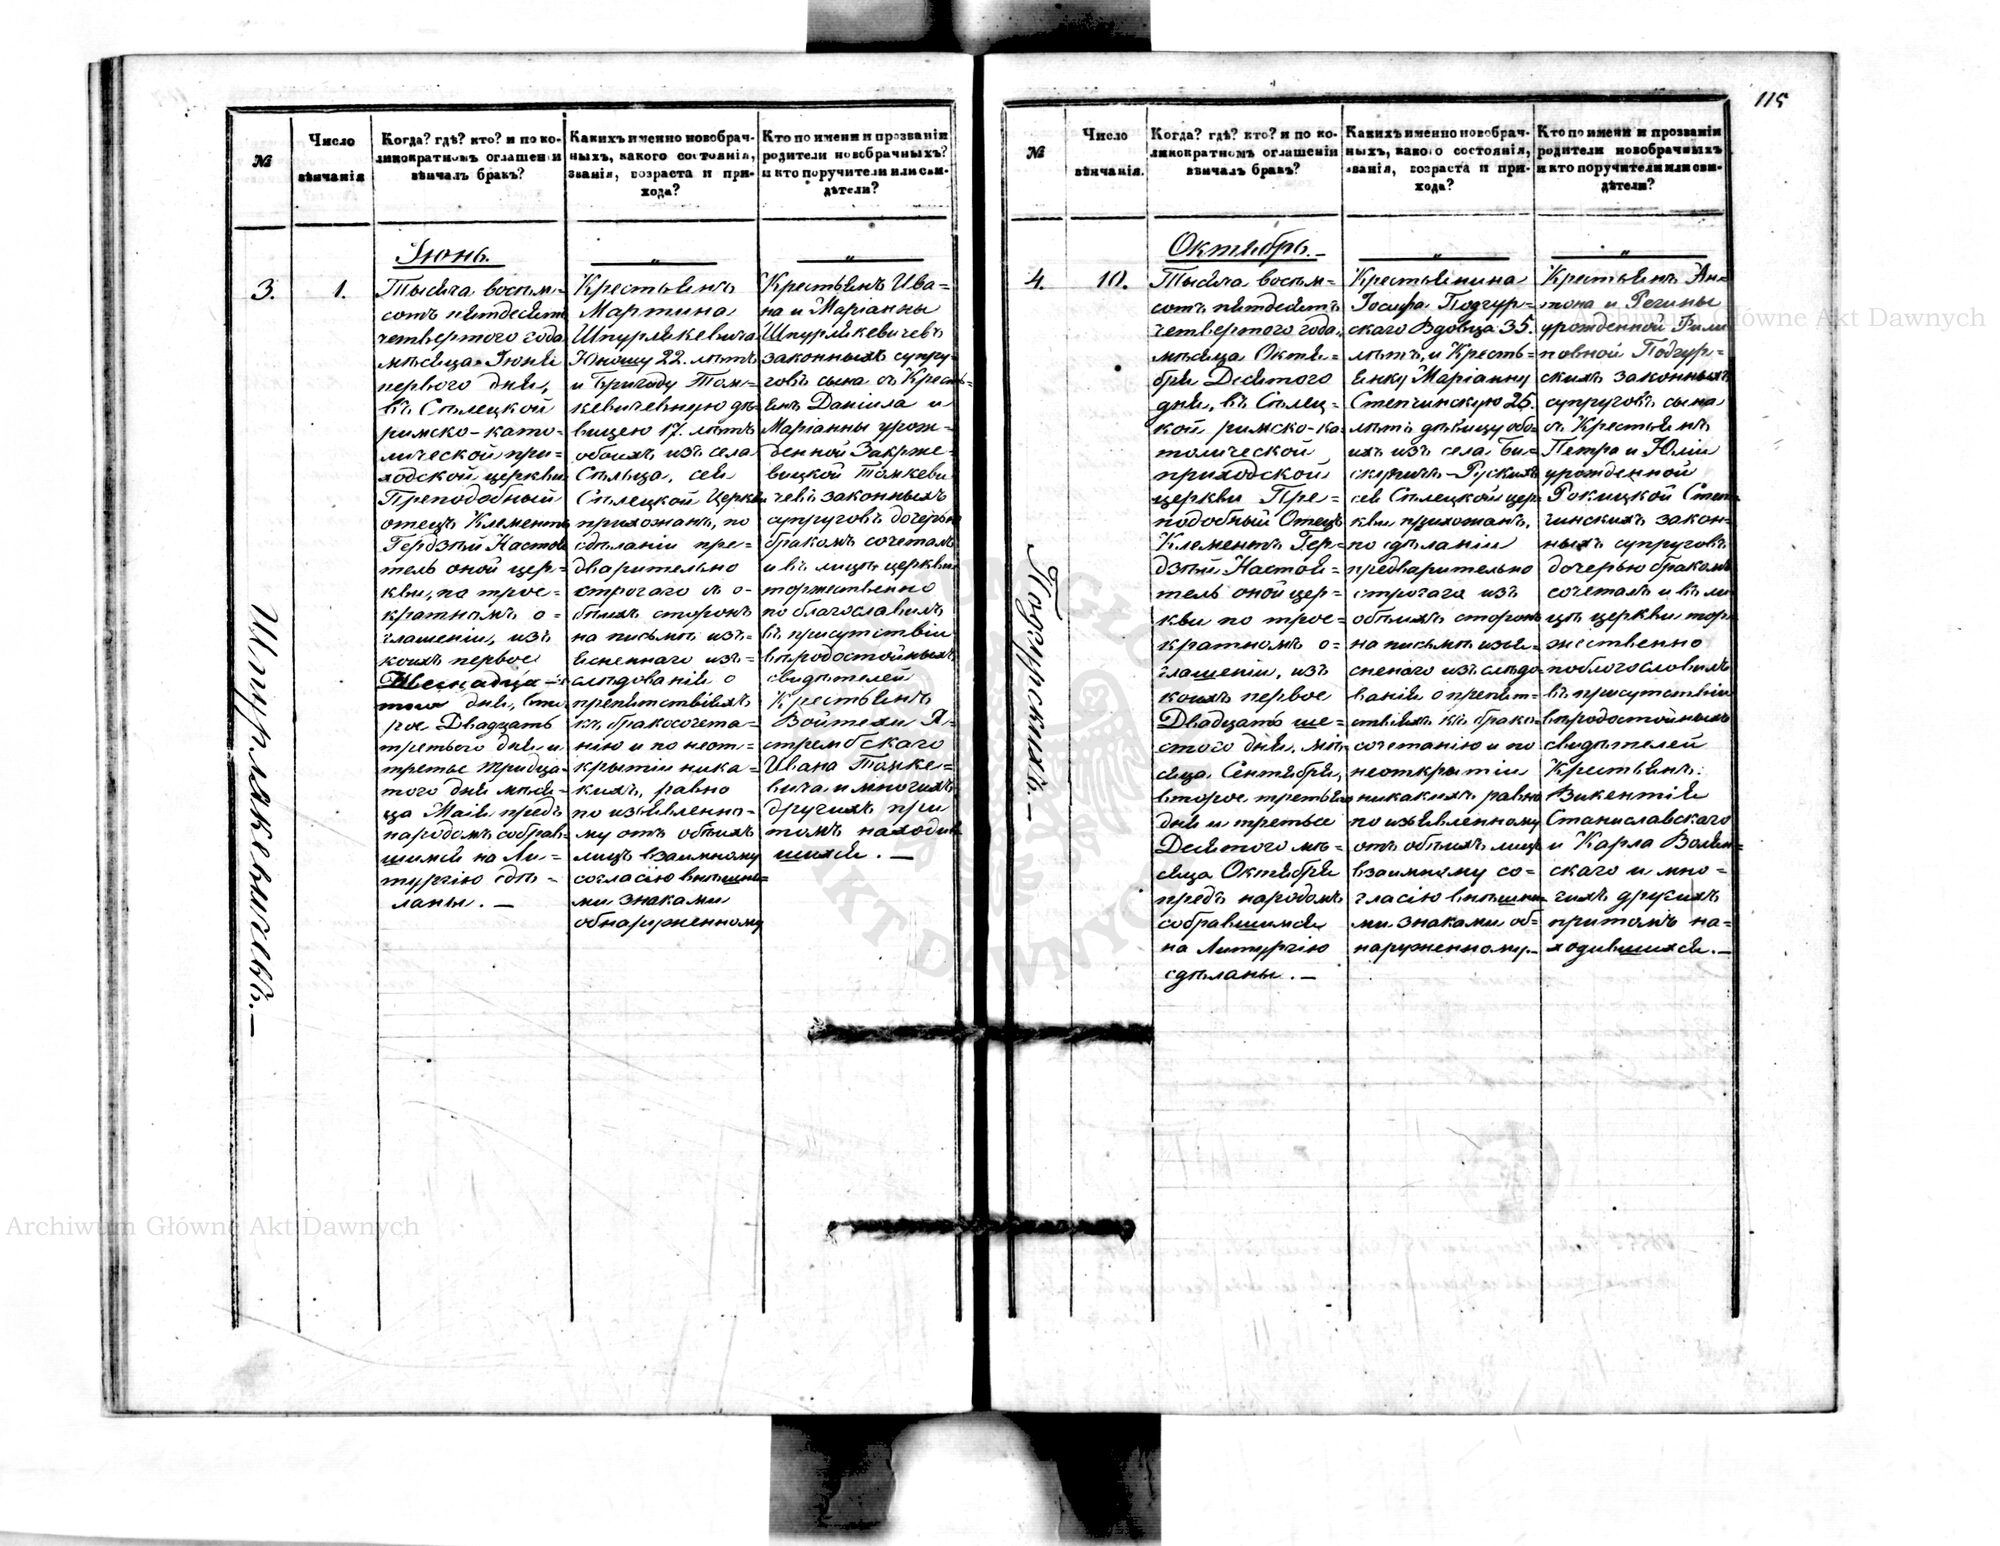 115
№
Число
вѣнчанія
Когда? гдѣ? кто? и по ко-
ликократномъ оглашеніи
вѣнчалъ бракъ?
Какихъ именно новобрач-
ныхъ, какого состоянія,
званія, возраста и при-
хода?
Кто по имени и прозваніи
родители новобрачныхъ?
и кто поручители или сви-
дѣтели?
3.
1.
Шпурлякевичевъ.—
Іюнь.
Тысяча восьм=
сотъ пятдесятъ
четвертого года
мѣсяца Іюня
первого дня,
въ Сѣлецкой
римско-като-
лической при=
ходской церкви
Преподобный
отецъ Климентъ
Настоя
тель оной цер=
кви, по трое=
кратномъ о=
глашеніи, изъ
коихъ первое
дня, вто
рое Двадцать
третьего дня и
третье тридца
того дня мѣся=
ца Мая предъ
народомъ собрав=
шимся на Ли=
тургію сдѣ=
ланы.—
"
Крестьянъ
Мартина
Шпурлякевича
Юношу 22. лѣтъ
и Бригиду Том=
кевичевную дѣ=
вицею 17. лѣтъ
обоихъ изъ села
Сѣльца, сей
Сѣлецкой Церкви
прихожанъ, по
сдѣланіи пре=
дварительно
строгаго съ о-
бѣихъ сторонъ
на письмѣ изъ=
ясненнаго изъ=
слѣдованія о
препятствіяхъ
къ бракосочета=
нію и по неот=
крытіи ника=
кихъ, равно
по изъявленно=
му отъ обѣихъ
лицъ взаимному
согласію внѣшни=
ми знаками
обнаруженному
"
Крестьянъ Ива=
на и Маріанны
Шпурлякевичевъ
законныхъ супру=
говъ сына съ Кресть=
янъ Даніила и
Маріанны урож=
денной Закрже=
вицкой Томкеви
чевъ законныхъ
супруговъ дочерью
бракомъ сочеталъ
и въ лицѣ церкви
торжественно
поблагославилъ
въ присутствіи
вѣродостойныхъ
свидѣтелей
Крестьянъ
Войтеха Я=
стрембскаго
Ивана Томке=
вича и многихъ
другихъ при
томъ находив
шихся.—
№
Число
вѣнчанія.
Когда? гдѣ? кто? и по ко-
ликократномъ оглашеніи
вѣнчалъ бракъ?
Какихъ именно новобрач-
ныхъ, какого состоянія,
званія, возраста и при-
хода?
Кто по имени и прозваніи
родители новобрачныхъ
и кто поручители или сви-
дѣтели?
4.
10.
Подгурскихъ.—
Октябрь.—
Тысяча восьм=
сотъ пятдесятъ
четвертого года,
мѣсяца Октя=
бря Десятого
дня, въ Сѣлец=
кой римско-ка=
толической
приходской
церкви Пре=
подобный Отецъ
Климентъ
Настоя=
тель оной цер=
кви по трое=
кратномъ о=
глашеніи, изъ
коихъ первое
Двадцать ше=
стого дня, мѣ=
сяца Сентября,
второе третьяго
дня и третье
Десятого мѣ=
сяца Октября
предъ народомъ
собравшимся
на Литургію
сдѣланы.—
"
Крестьянина
Іосифа Подгур=
скаго Вдовца 35.
лѣтъ, и Кресть=
янку Маріанну
Степчинскую 26.
лѣтъ дѣвицу обо=
ихъ изъ села Би=
скупичъ-Рускихъ
сей Сѣлецкой цер=
кви прихожанъ,
по сдѣланіи
предварительно
строгаго изъ
обѣихъ сторонъ
на письмѣ изъя=
сненого изслѣдо=
ванія о препят=
ствіяхъ къ брако=
сочетанію и по
неоткрытіи
никакихъ равно
по изъявленному
отъ обѣихъ лицъ
взаимному со=
гласію внѣшни=
ми знаками об=
наруженному.—
"
Крестьянъ Ан=
тона и Регины
урожденной
Подгур=
скихъ законныхъ
супруговъ сына
съ Крестьянъ
Петра и Юліи
урожденной
Рокицкой Степ=
чинскихъ закон=
ныхъ супруговъ
дочерью бракомъ
сочеталъ и въ ли
цѣ церкви тор=
жественно
поблогословилъ
въ присутствіи
вѣродостойныхъ
свидѣтелей
Крестьянъ:
Викентія
Станиславскаго
и Карла Волян=
скаго и мно=
гихъ другихъ
притомъ на=
ходившихся.—
Archiwum Główne Akt Dawnych
Archiwum Główne Akt Dawnych